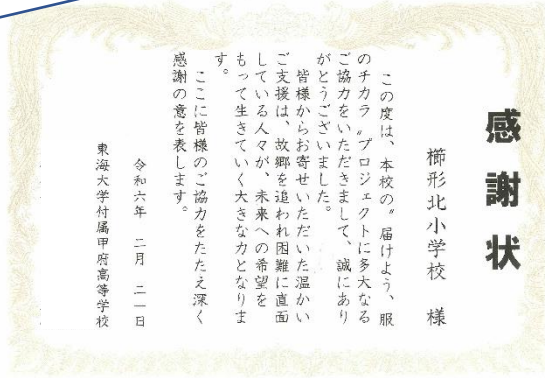 感謝状
櫛形北小学校 様
この度は、本校の〝届けよう、服
のチカラ〟プロジェクトに多大なる
ご協力をいただきまして、誠にあり
がとうございました。
皆様からお寄せいただいた温かい
ご支援は、故郷を追われ困難に直面
している人々が、未来への希望を
もって生きていく大きな力となりま
す。
ここに皆様のご協力をたたえ深く
感謝の意を表します。
令和六年 二月 二一日
東海大学付属甲府高等学校